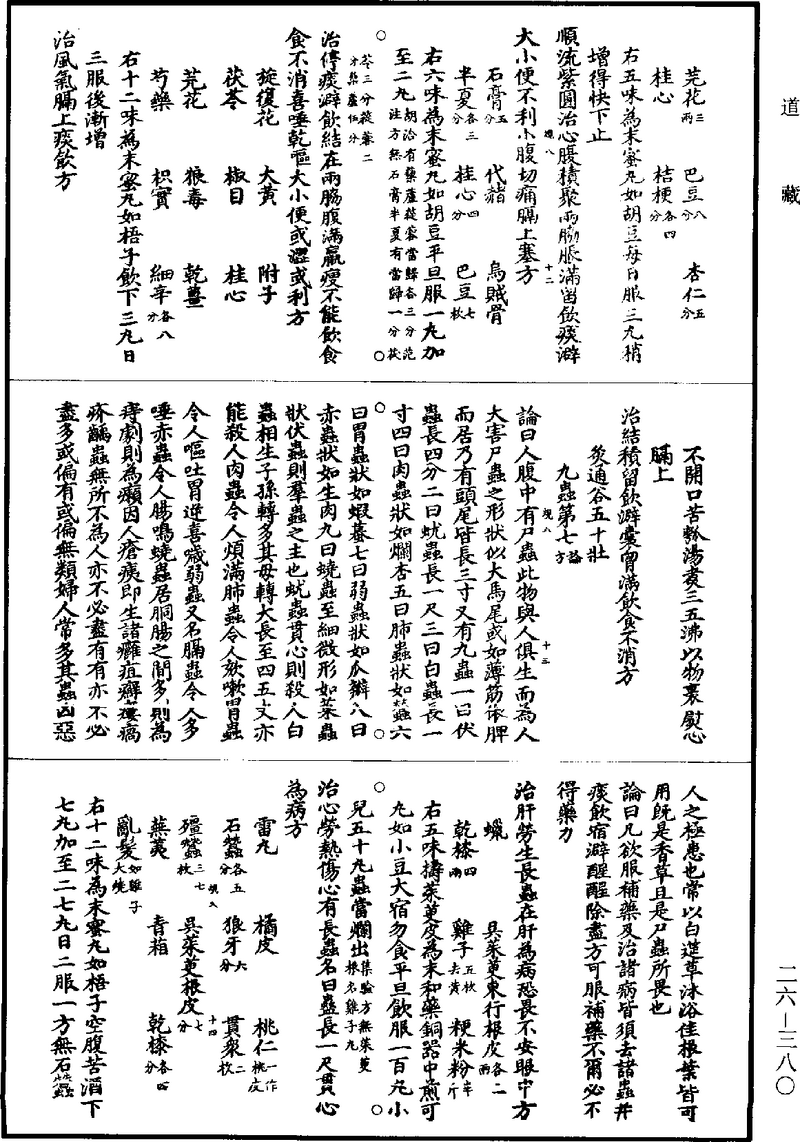 道藏
芫花三兩　巴豆八分　杏仁五分
桂心　桔梗各四分
右五味為末蜜丸如胡豆每日服三丸稍
增得快下止
順流紫圓治心腹積聚兩脇脹滿留飲痰澼
大小便不利小腹切痛膈上塞方
石膏五分　代赭　烏賊骨
半夏各三分　桂心四分　巴豆七枚
右六味為末蜜丸如胡豆平旦服一丸加
至二丸胡洽有藜蘆蓯蓉當歸各三分范汪方無石膏半夏有當歸一分茯
苓三分蓯蓉二分藜蘆伍分
治停痰澼飲結在兩脇腹滿羸瘦不能飲食
食不消喜唾乾嘔大小便或澀或利方
旋復花　大黃　附子
茯苓　椒目　桂心
芫花　狼毒　乾薑
芍藥　枳實　細辛各八分
右十二味為末蜜丸如梧子飲下三丸日
三服後漸增
治風氣膈上痰飲方
不開口苦瓠湯煮三五沸以物裹熨心
膈上
治結積留飲澼囊胷滿飲食不消方
灸通谷五十壯
九蟲第七方論
論曰人腹中有尸蟲此物與人俱生而為人
大害尸蟲之形狀似大馬尾或如薄筋依脾
而居乃有頭尾皆長三寸又有九蟲一曰伏
蟲長四分二曰蚘蟲長一尺三曰白蟲長一
寸四曰肉蟲狀如爛杏五曰肺蟲狀如蠶六
曰胃蟲狀如蝦蟇七曰弱蟲狀如瓜瓣八曰
赤蟲狀如生肉九曰蟯蟲至細微形如菜蟲
狀伏蟲則羣蟲之主也蚘蟲貫心則殺人白
蟲相生子孫轉多其母轉大長至四五丈亦
能殺人肉蟲令人煩滿肺蟲令人欬嗽胃蟲
令人嘔吐胃逆喜噦弱蟲又名膈蟲令人多
唾赤蟲令人腸鳴蟯蟲居胴腸之間多則為
痔劇則為癩因人瘡痍即生諸癰疽癬瘻瘑
疥齲蟲無所不為人亦不必盡有有亦不必
盡多或偏有或偏無類婦人常多其蟲凶惡
人之極患也常以白筳草沐浴佳根葉皆可
用既是香草且是尸蟲所畏也
論曰凡欲服補藥及治諸病皆須去諸蟲并
痰飲宿澼醒醒除盡方可服補藥不爾必不
得藥力
治肝勞生長蟲在肝為病恐畏不安眼中方
蠟　吳茱萸東行根皮各二兩
乾漆四兩　雞子五枚去黃　粳米粉半斤
右五味擣茱萸皮為末和藥銅器中煎可
丸如小豆大宿勿食平旦飲服一百丸小
兒五十丸蟲當爛出集驗方無茱萸根名雞子丸
治心勞熱傷心有長蟲名曰蠱長一尺貫心
為病方
雷丸　橘皮　桃仁一作桃皮
石蠶各五分　狼牙六分　貫衆二枚
殭蠶三七枚　吳茱萸根皮十四分
蕪荑　青葙　乾漆各四分
亂髮如雞子大燒
右十二味為末蜜丸如梧子空腹苦酒下
七丸加至二七丸日二服一方無石蠶
二六—三八〇